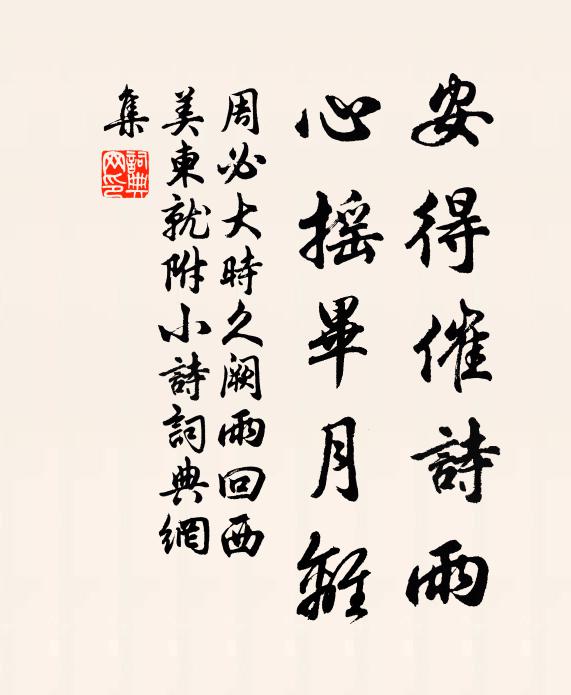 安得催詩雨
心搖畢月離
周必大時久闕雨回西
美東就附小詩詞典網
集
詞典網印